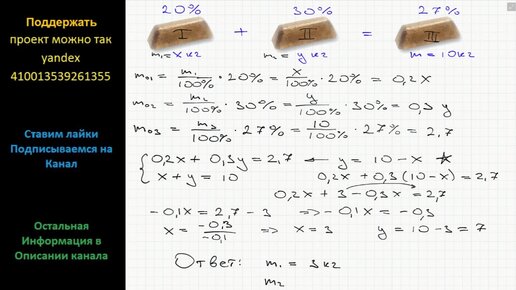 Поддержать
проект можно так
yandex
410013539261355
Ставим лайки
Подписываемся на
Канал
Остальная
Информация в
Описании канала
20% 30% 27%
I + II = III
m₁=xкг m₂=yкг m=10кг
m₀₁ = m₁/100% · 20% = x/100% · 20% = 0,2x
m₀₂ = m₂/100% · 30% = y/100% · 30% = 0,3y
m₀₃ = m₃/100% · 27% = 10/100% · 27% = 2,7
{ 0,2x + 0,3y = 2,7 ← y = 10-x *
x + y = 10 0,2x + 0,3(10-x) = 2,7
0,2x + 3 - 0,3x = 2,7
-0,1x = 2,7 - 3 => -0,1x = -0,3
x = -0,3/-0,1 => x = 3 y = 10-3 = 7
Ответ: m₁ = 3кг
m₂